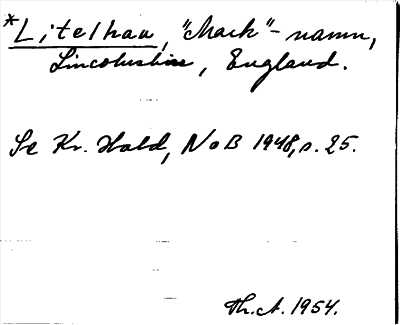 *Litelhau, "Mark"-namn,
Lincolnshire, England.
Se Kr. Hald, NoB 1948, s. 25.
Th.A. 1954.